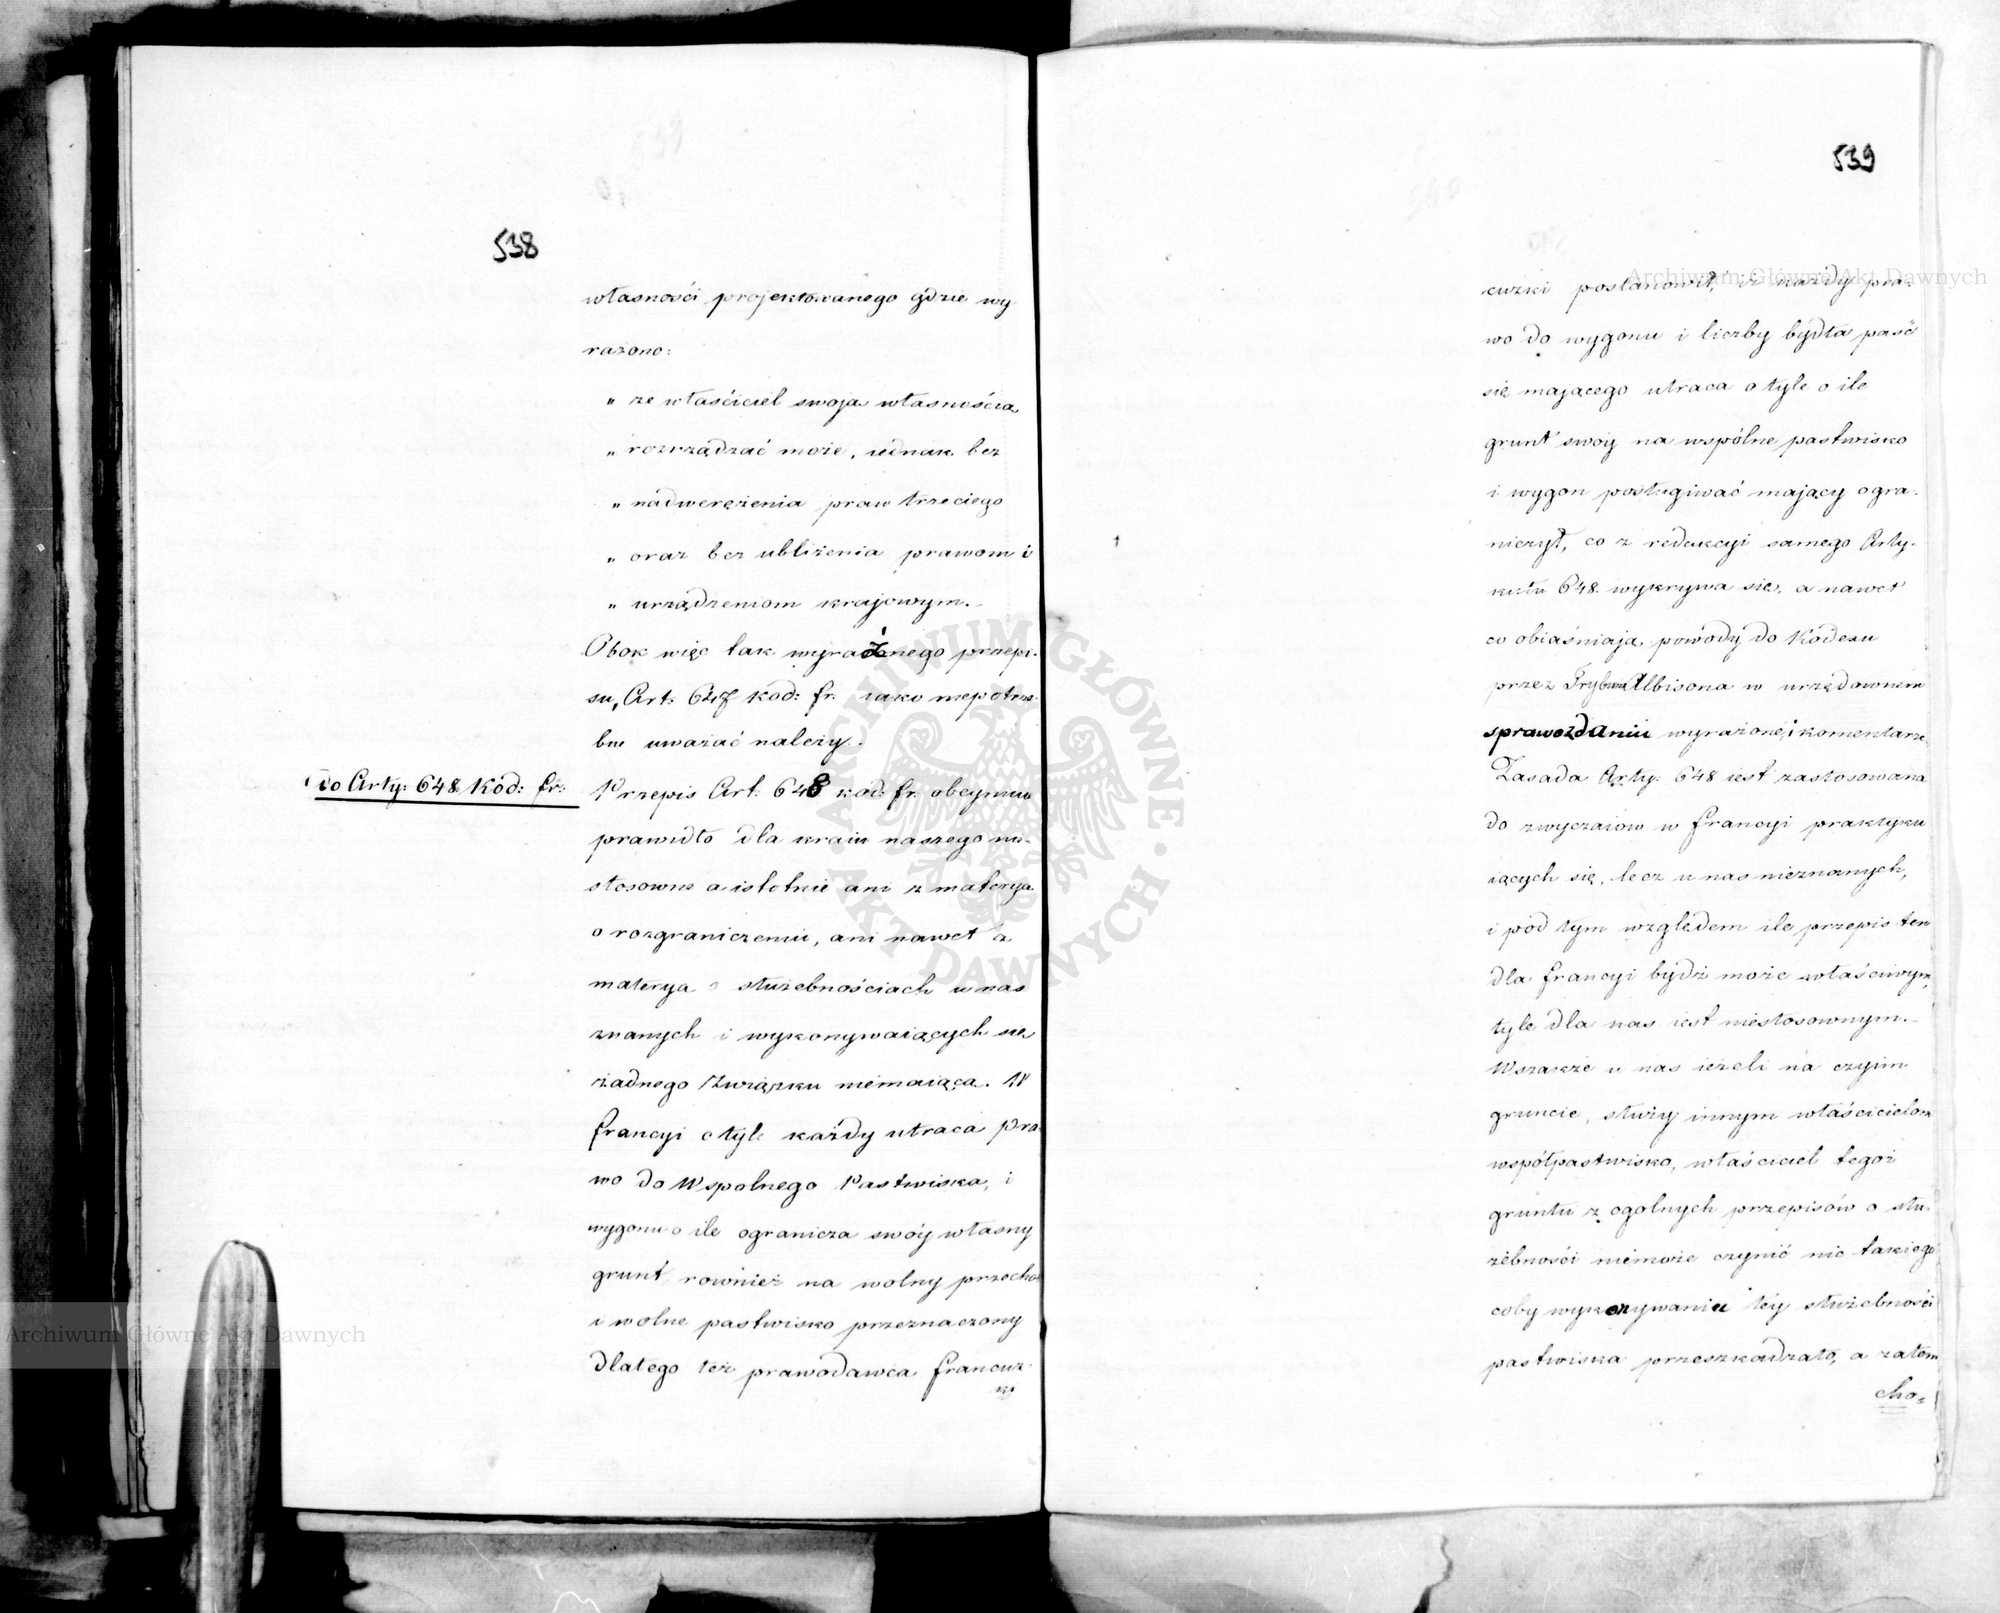 538
własności projektowanego gdzie wy
rażono:
„ że właściciel swoją własnością
„ rozrządzać może, iednak bez
„ nadwerężenia praw trzeciego
„ oraz bez ubliżenia prawom i
„ urządzeniom krajowym._
Obok więc tak wyraźnego przepi-
su, Art: 647 kod: fr. iako niepotrze-
bne uważać należy.
do Arty: 648 Kod: fr:
Przepis Art: 648 kod: fr. obeymuie
prawidło dla kraiu naszego nie-
stosowne a istotnie ani z materyą
o rozgraniczeniu, ani nawet z
materyą o służebnościach u nas
znanych i wykonywaiących się
żadnego Związku niemaiąca. W
francyi o tyle każdy utraca pra
wo do Wspolnego Pastwiska, i
wygonu o ile ogranicza swóy własny
grunt rownież na wolny przechod
i wolne pastwisko przeznaczony
dlatego też prawodawca francuz-
ki
539
cuzki postanowił, iż każdy pra-
wo do wygonu i liczby bydła paść
się mającego utraca o tyle o ile
grunt swoiy na wspólne pastwisko
i wygon posługiwać mający ogra-
niczył, co z redakcyi samego Arty-
kułu 648. wykrywa się, a nawet
co obiaśniają powody do Kodexu
przez Trybuna Albisona w urzędownem
sprawozdaniu wyrażone, i komentarze.
Zasada Arty: 648 iest zastosowana
do zwyczaiow w francyi praktyku
iących się, lecz u nas nieznanych,
i pod tym względem ile przepis ten
dla francyi bydź może właściwym,
tyle dla nas iest niestosownym._
Wszakże u nas ieżeli na czyim
gruncie, służy innym właścicielom
współpastwisko, właściciel tegoż
gruntu z ogolnych przepisów o słu-
żebności niemoże czynić nic takiego
coby wykonywaniu tey służebności
pastwiska przeszkadzało, a zatem
cho=
Archiwum Główne Akt Dawnych
Archiwum Główne Akt Dawnych
ARCHIWUM GŁÓWNE • AKT DAWNYCH •